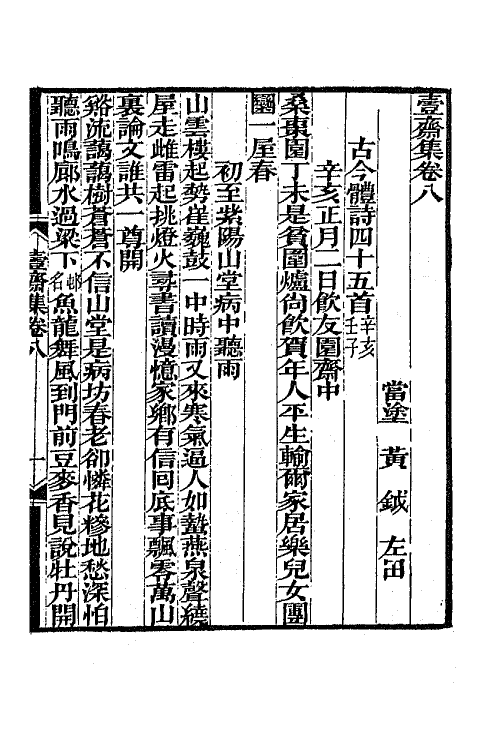 壹齋集卷八
當塗 黃 鉞 左田
古今體詩四十五首辛亥壬子
辛亥正月二日飲友園齋中
桑棗園丁未是貧圍爐尙飲賀年人平生輸爾家居樂兒女團
圞一屋春
初至紫陽山堂病中聽雨
山雲樓起勢崔巍鼓一中時雨又來寒氣逼人如蟄燕泉聲繞
屋走雌雷起挑燈火尋書讀漫憶家鄉有信回底事飄零萬山
裏論文誰共一尊開
谿流㶁㶁樹蒼蒼不信山堂是病坊春老卻憐花糝地愁深怕
聽雨鳴廊水過梁下魚龍舞風到門前豆麥香見說牡丹開
壹齋集卷八
一